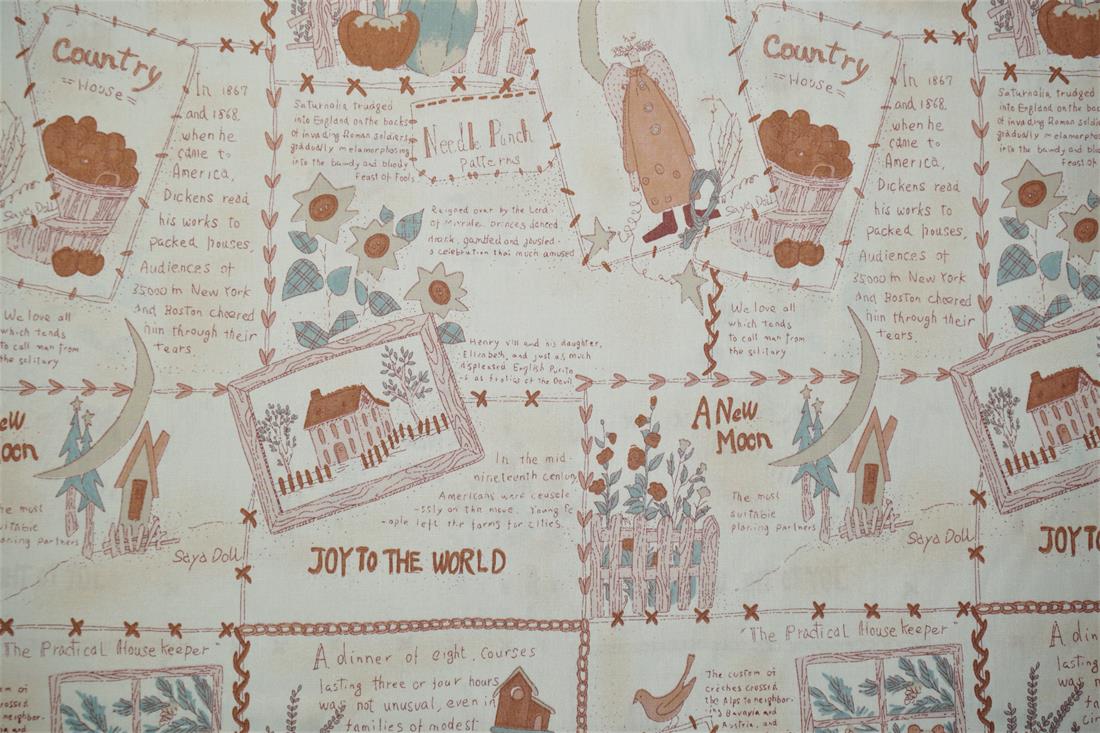 Country
House
In 1867
and 1868,
when he
came to
America,
Dickens read
his works to
packed houses,
Audiences of
35000 in New York
and Boston cheered
him through their
tears.
Saya Doll
We love all
which tends
to call man from
the solitary
Saturnalia trudged
into England on the backs
of invading Roman soldiers
gradually metamorphosing
into the bawdy and bloody
Feast of Fools
Needle Punch
patterns
Reigned over by the Lord
of misrule, princes danced
drank, gambled and jousted
a celebration that much amused
Henry VIII and his daughter,
Elizabeth, and just as much
as frolics of the Devil
Country
House
In 1867
and 1868,
when he
came to
America,
Dickens read
his works to
packed houses,
Audiences of
35000 in New York
and Boston cheered
him through their
tears.
Saya Doll
We love all
which tends
to call man from
the solitary
Saturnalia trudged
into England on the
of invading Roman soldiers
gradually metamorphosing
into the bawdy and
Feast of
ew
oon
he most
suitable
planing partners
Saya Doll
In the mid-
nineteenth
Americans were
-ssly on the move. Young
-ople left the farms for cities.
JOY TO THE WORLD
A New
Moon
The most
suitable
planing partners
Saya Doll
JOY TO
The Practical House Keeper"
A dinner of eight, courses
lasting three or four hours
was not unusual, even in
families of modest
"The Practical House Keeper"
The custom of
creches crossed
the Alps to neighbor-
ing Bavaria and
Austria, and
A
lasting
was